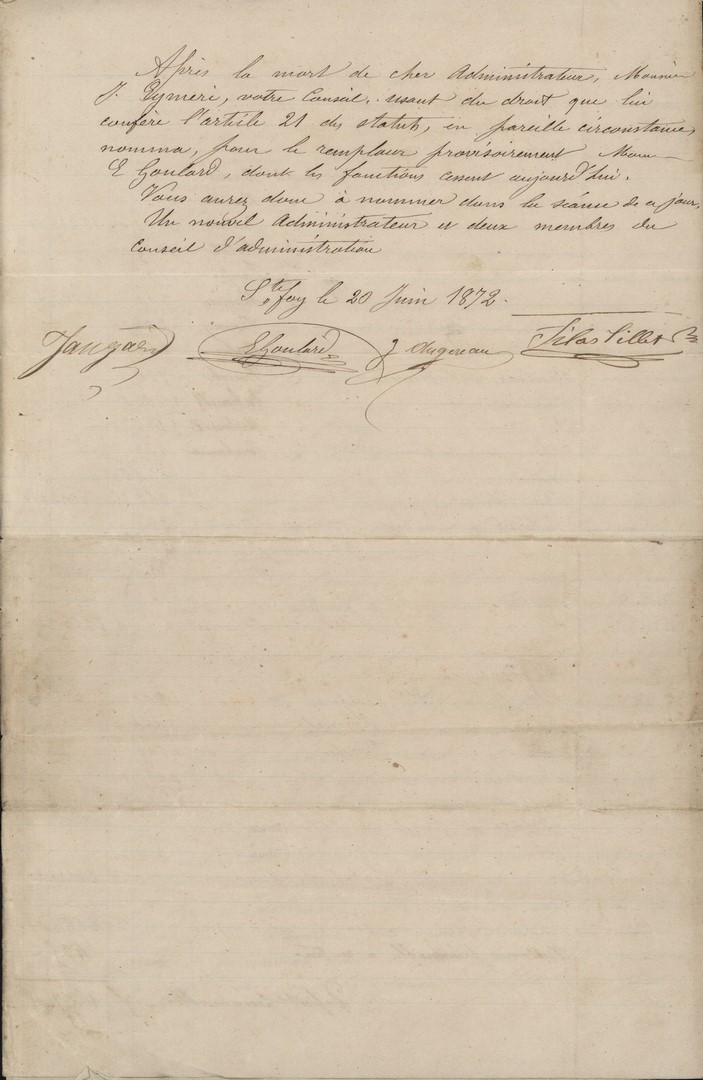 Après la mort de cher Administrateur, Monsieur
J. Eymeri, votre Conseil, usant du droit que lui
confère l'article 21 des statuts, en pareille circonstance,
nomma, pour le remplacer provisoirement Mons
E Goulard, dont les fonctions cessent aujourd'hui.
Vous aurez donc à nommer dans la séance de ce jour,
Un nouvel Administrateur et deux membres du
Conseil d'administration
Ste foy le 20 Juin 1872.
EGoulard Augereau Silas Villet